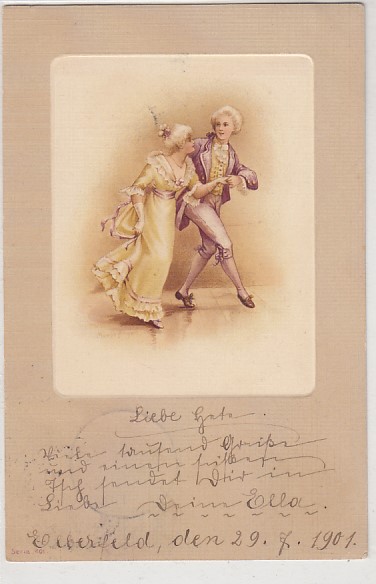 Liebe Hete.
Viele tausend Grüße
und einen süßen
sendet Dir in
Liebe Deine Ella.
Elberfeld, den 29. 7. 1901.
Serie